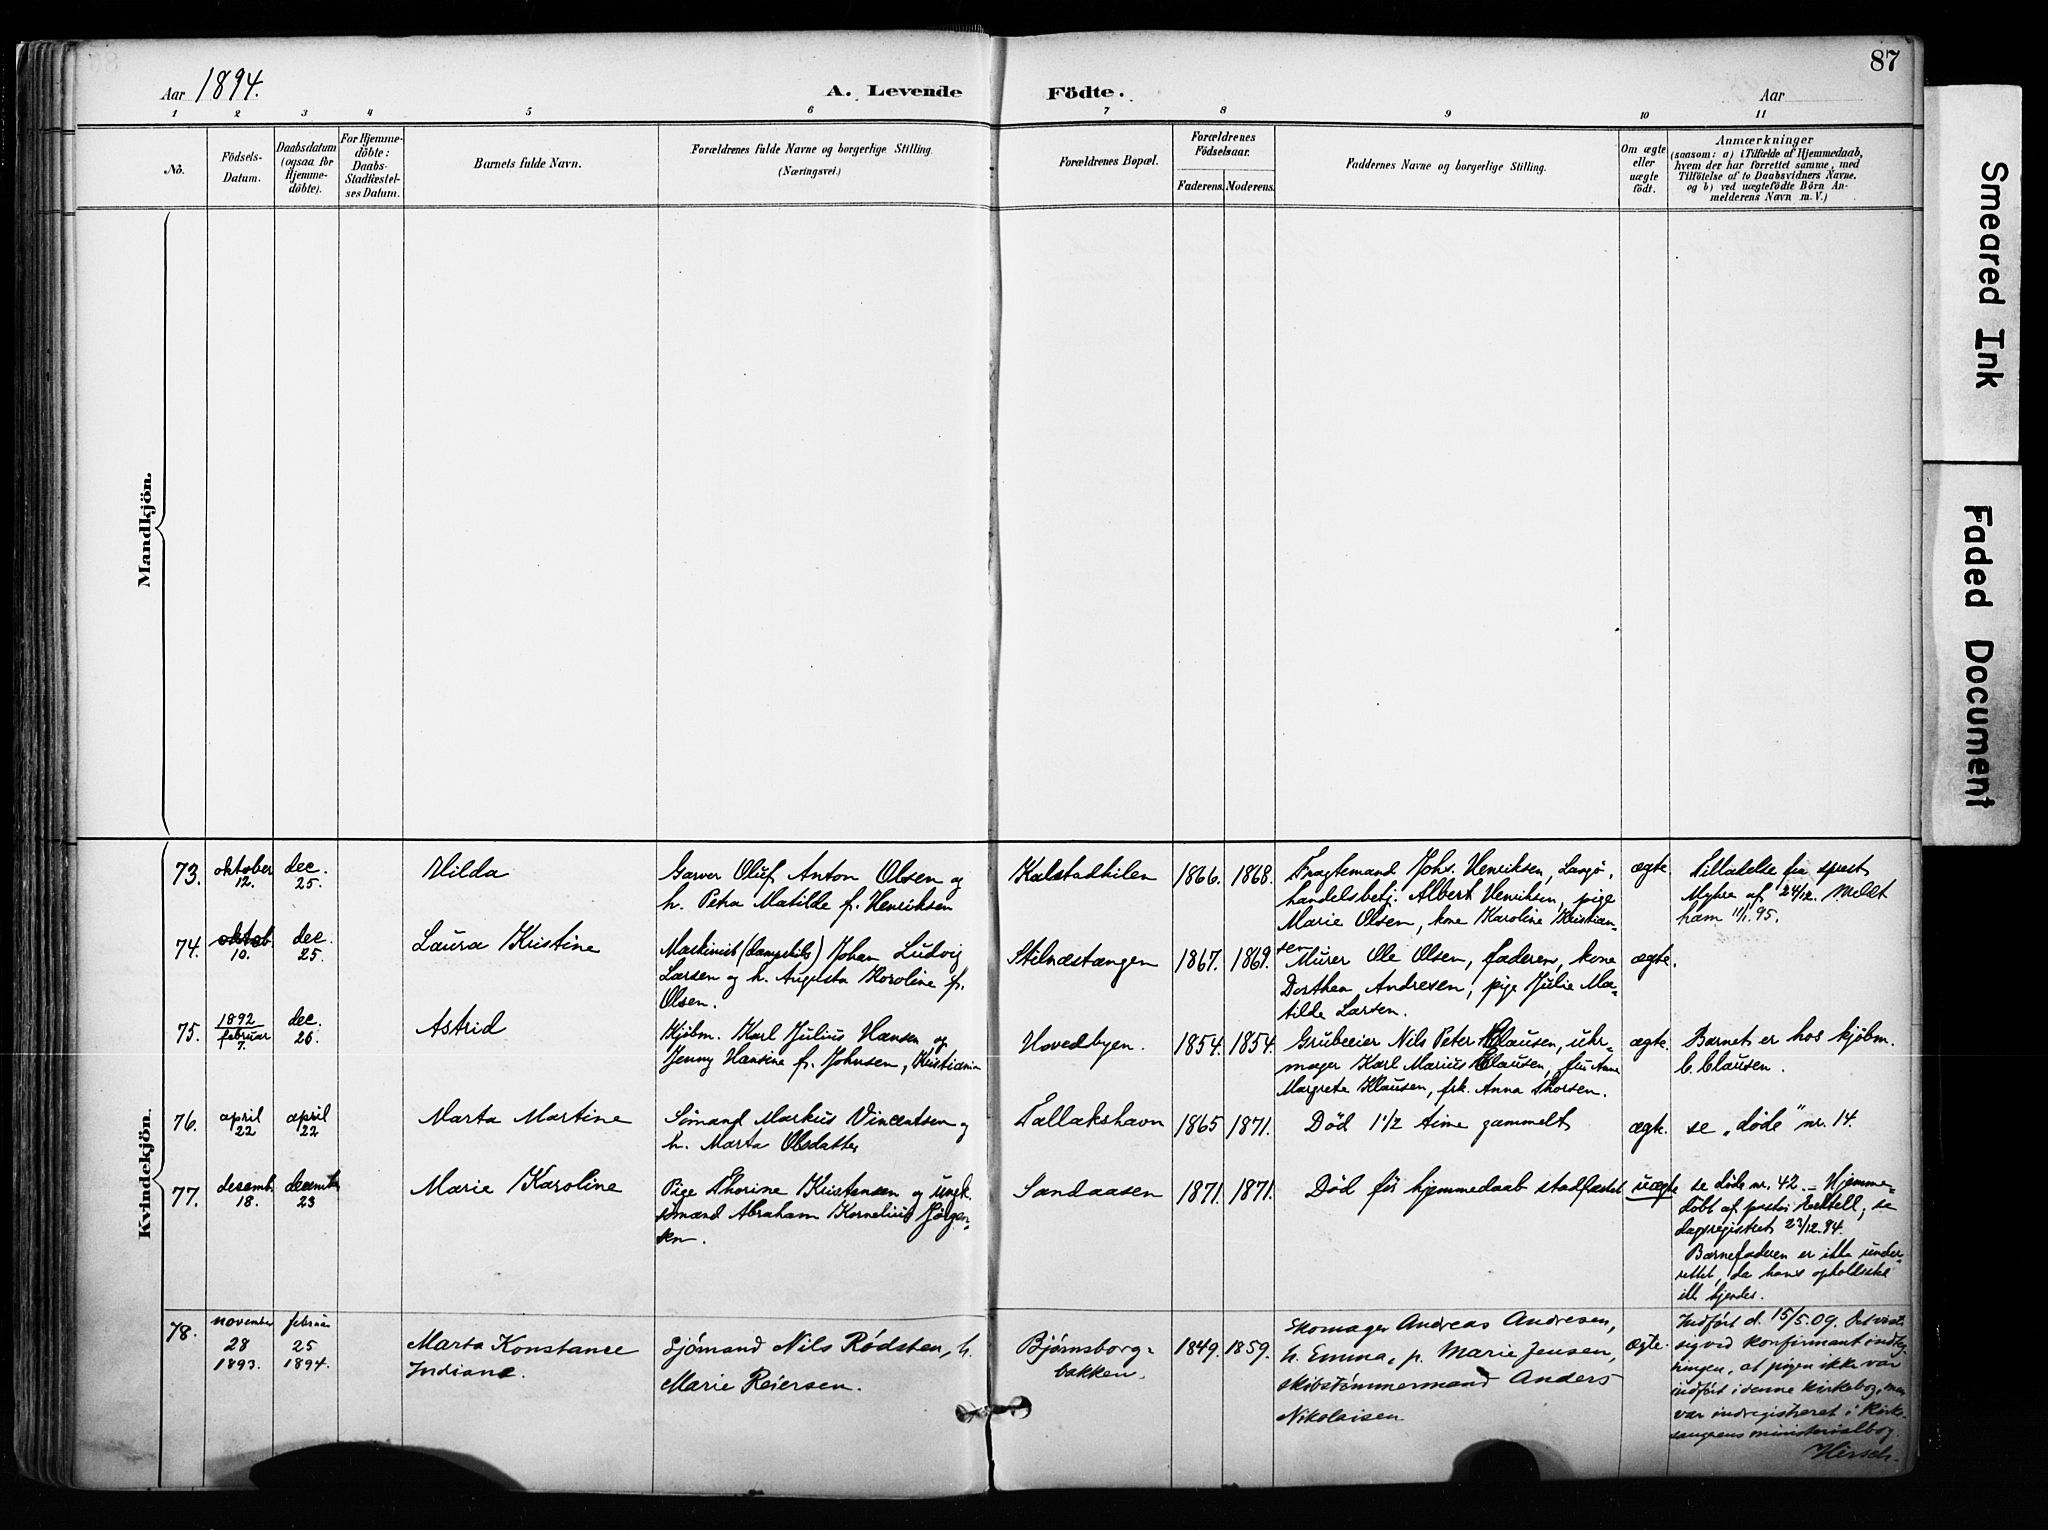 87
Aar 1894.
A. Levende Födte.
Aar
1 2 3 4 5 6 7 8 9 10 11
No.
Födsels-
Datum.
Daabsdatum
(ogsaa for
Hjemme-
döbte).
For Hjemme-
döbte:
Daabs-
Stadfæstel-
ses Datum.
Barnets fulde Navn.
Forældrenes fulde Navne og borgerlige Stilling.
(Næringsvei.)
Forældrenes Bopæl.
Forældrenes
Födselsaar.
Faderens.
Moderens.
Faddernes Navne og borgerlige Stilling.
Om ægte
eller
uægte
födt.
Anmærkninger
(saasom: a) i Tilfælde af Hjemmedaab,
hvem der har forrettet samme, med
Tilföielse af to Daabsvidners Navne.
og b) ved uægtefödte Börn An-
melderens Navn m. V.)
Mandkjön.
Kvindekjön.
73.
oktober
12.
dec.
25.
Hilda
Garver Oluf Anton Olsen og
h. Petra Matilde f. Henriksen
Kalstadkilen
1866.
1868.
Fragtemand Johs. Henriksen, Langö,
handelsbetj. Albert Henriksen, pige
Marie Olsen, kone Karoline Kristian-
sen
ægte.
Tilladelse fra sprest
Myhre af 24/12. Meldt
ham 11/1.95.
74.
oktob.
10.
dec.
25.
Laura Kristine
Maskinist (dampskibs) Johan Ludvig
Larsen og h. Augusta Karoline f.
Olsen.
Stilnæstangen
1867.
1869.
Murer Ole Olsen, faderen, kone
Dorthea Andresen, pige Julie Ma-
tilde Larsen.
ægte.
75.
1892
februar
7.
dec.
26.
Astrid
Kjøbm. Karl Julius Hansen og
Jenny Hansine f. Johnsen, Kristiania
Hovedbyen.
1854.
1854.
Grubeeier Nils Peter Clausen, uhr-
mager Karl Marius Clausen, fru Anne
Margrete Klausen, frk. Anna Thorsen.
ægte.
Barnet er hos kjøbm.
C. Clausen.
76.
april
22
april
22
Marta Martine
Sömand Markus Vincentsen og
h. Marta Olsdatter
Tallakshavn
1865
1871.
Död 1 1/2 time gammelt
ægte.
se „døde" nr. 14.
77.
desemb.
18.
decembr
23
Marie Karoline
Pige Thorine Kristensen og ungk.
sømand Abraham Kornelius Jörgen-
sen.
Sandaasen
1871.
1871.
Död før hjemmedaab stadfæstet
uægte
se døde nr. 42. - Hjemme-
døbt af pastor; se
dagsregistret 23/12.94.
Barnefaderen er ikke under-
rettet, da hans opholdssted
ikke kjendes.
78.
november
28
1893.
februar
25
1894.
Marta Konstanse
Indiane.
Sjömand Nils Rødsten, h.
Marie Reiersen.
Bjørnsborg-
bakken.
1849.
1859.
Skomager Andreas Andresen,
h. Emma, p. Marie Jensen,
skibstømmermand Anders
Nikolaisen
ægte.
Indført d. 15/5.09. Det viste
sig ved konfirmantindteg-
ningen, at pigen ikke var
indført i denne kirkebog, men
var indregistreret i Kirke-
sangerens ministerialbog.
Hirsch.
Smeared Ink
Faded Document